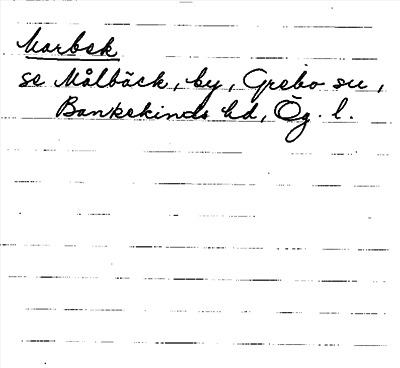 Marbek
se Målbäck, by, Grebo sn,
Bankekinds hd, Ög. l.